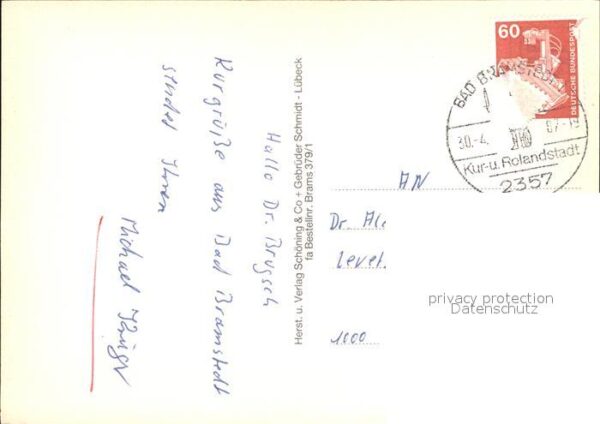 Hallo Dr. Brugsch
Kurgrüße aus Bad Bramstedt
sendet Ihnen
Michael
Herst. u. Verlag Schöning & Co + Gebrüder Schmidt - Lübeck
fa Bestellnr. Brams 379/1
60
DEUTSCHE BUNDESPOST
BAD BRAMSTEDT
30.-4.
-19
Kur-u. Rolandstadt
2357
AN
Dr. Al
Levet.
1000
privacy protection
Datenschutz